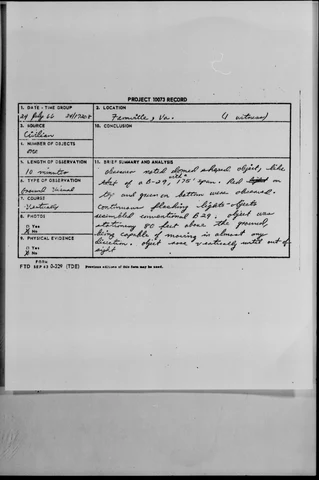 PROJECT 10073 RECORD
1. DATE - TIME GROUP
24 July 66 24/1730Z
2. LOCATION
Farmville, Va. (1 witness)
3. SOURCE
Civilian
10. CONCLUSION
4. NUMBER OF OBJECTS
one
5. LENGTH OF OBSERVATION
10 minutes
11. BRIEF SUMMARY AND ANALYSIS
observer noted domed shaped object, like
that of a B-29, with 175' span. Red light on
top and green on bottom were observed.
continuous flashing lights - objects
resembled conventional B29. object was
stationary 80 feet above the ground,
being capable of moving in almost any
direction. object rose vertically until out of
sight
6. TYPE OF OBSERVATION
Ground Visual
7. COURSE
Vertically
8. PHOTOS
□ Yes
☒ No
9. PHYSICAL EVIDENCE
□ Yes
☒ No
FORM
FTD SEP 63 0-329 (TDE) Previous editions of this form may be used.